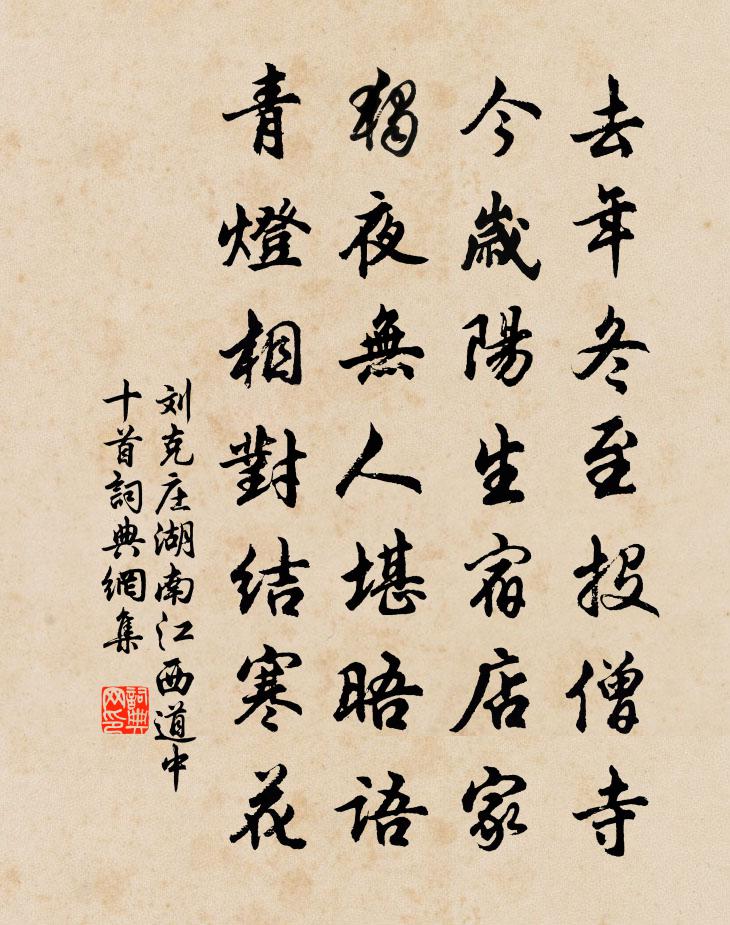 去年冬至投僧寺
今歲陽生宿店家
獨夜無人堪晤語
青燈相對結寒花
刘克庄湖南江西道中
十首詞典網集
詞典网印